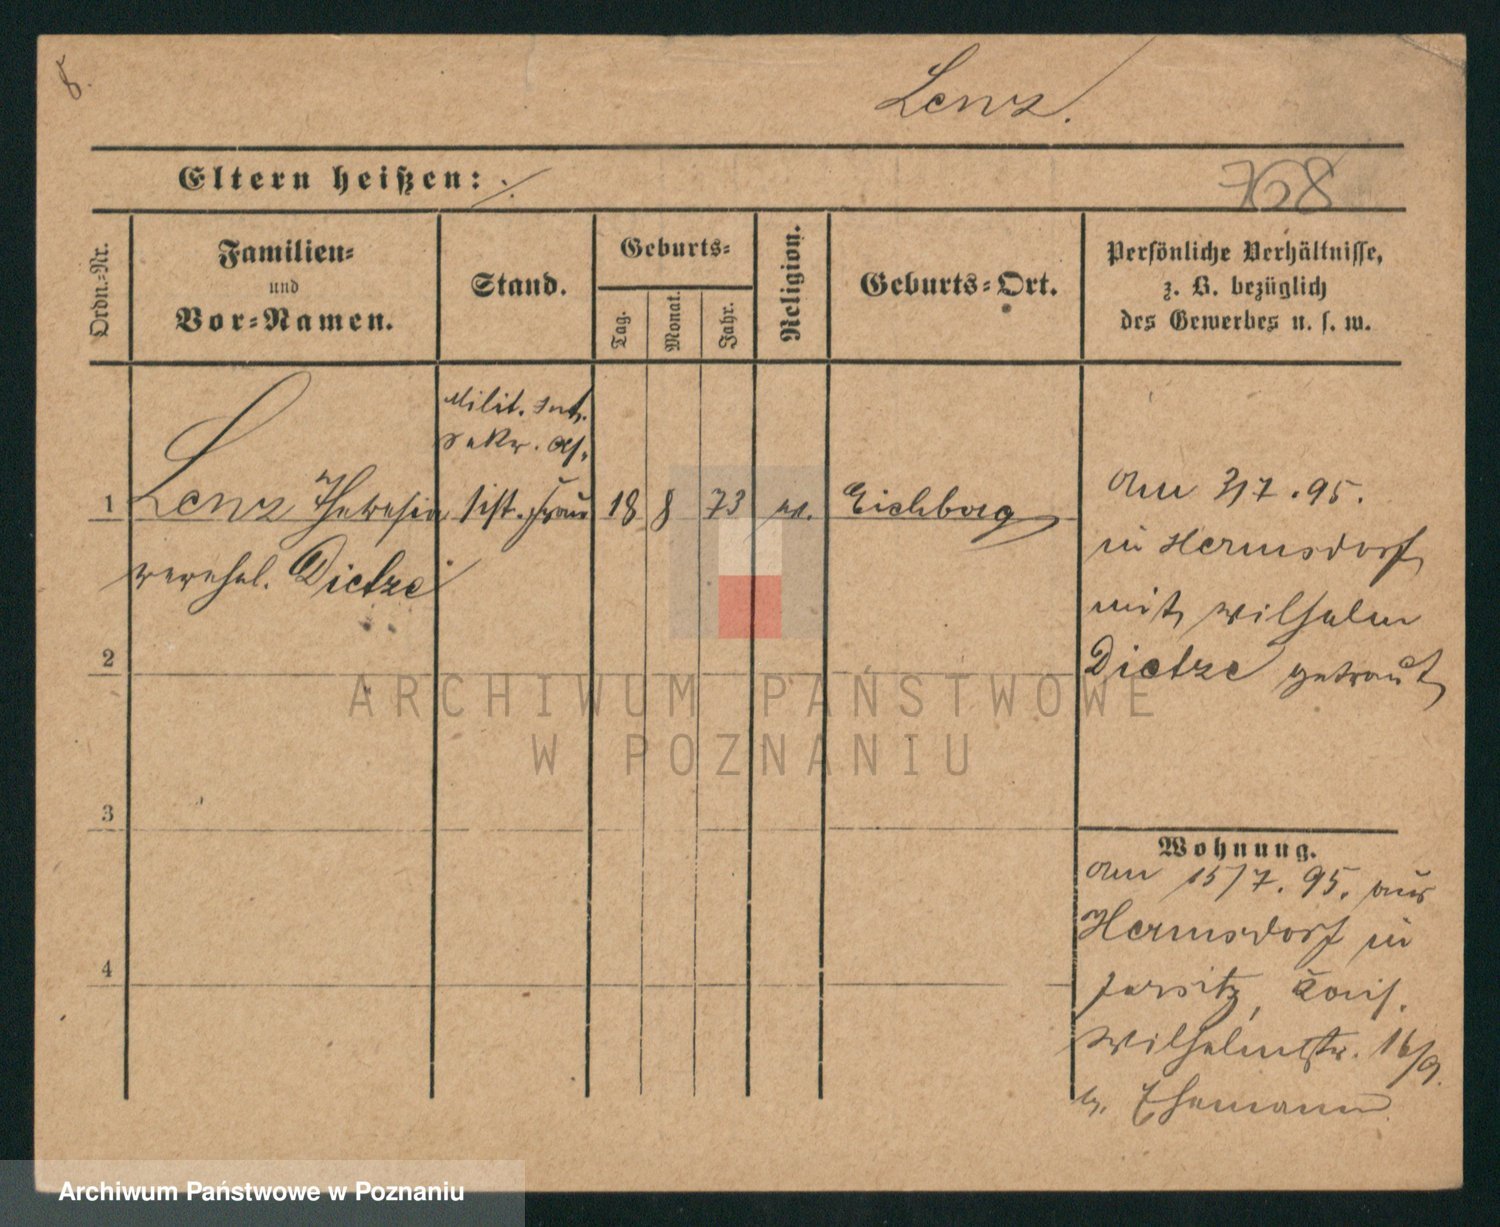 8.
Lenz.
Eltern heißen: ./.
768
Ordn.-Nr.
Familien-
und
Vor-Namen.
Stand.
Geburts-
Tag.
Monat.
Jahr.
Religion.
Geburts-Ort.
Persönliche Verhältnisse,
z. B. bezüglich
des Gewerbes u. s. w.
Milit. Int.
Sekr. As,
1 Lenz Theresia sist. Frau 18 8 73 ev. Eichberg
verehel. Dietze
am 2/7.95.
in Hermsdorf
mit Wilhelm
Dietze getraut
2
3
4
Wohnung.
am 15/7. 95. aus
Hermsdorf in
Jersitz, Kais.
Wilhelmstr. 16/9.
b. Ehemann
ARCHIWUM PAŃSTWOWE
W POZNANIU
Archiwum Państwowe w Poznaniu